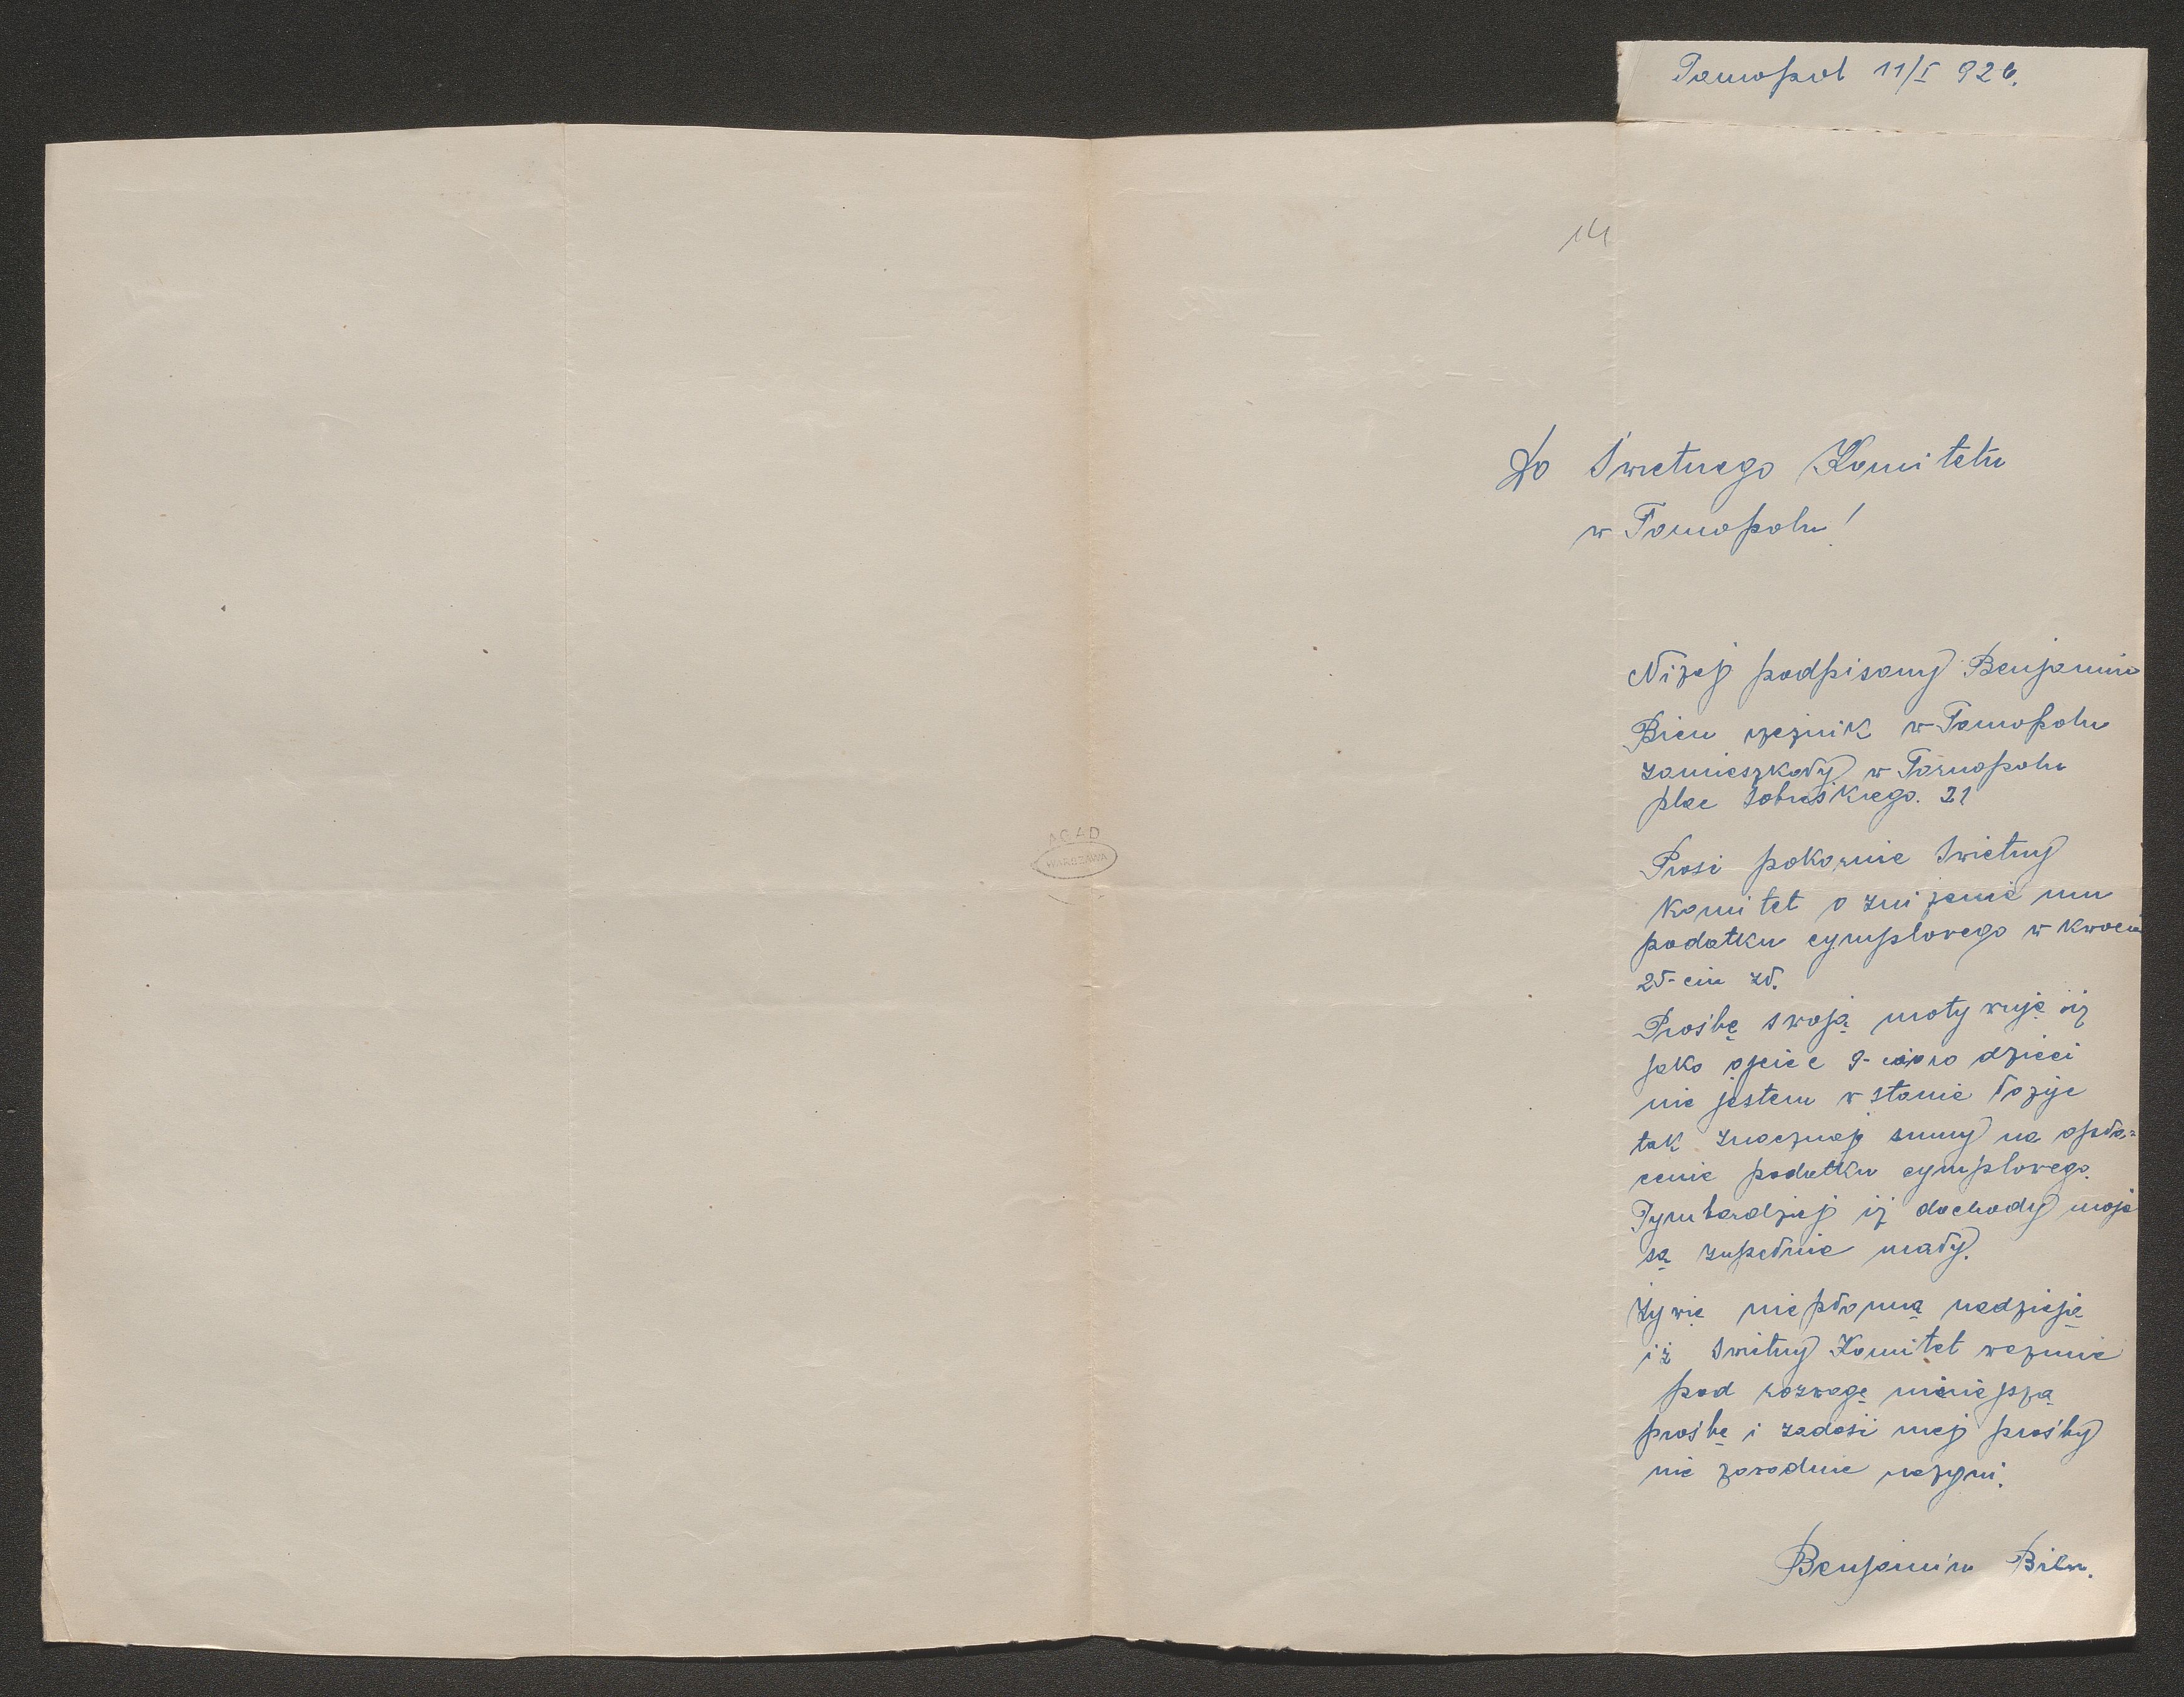 Tarnopol 11/I 926.
14
Do Swietnego Komitetu
w Tarnopolu!
Niżej podpisany Benjamin
Bien rzeźnik w Tarnopolu
zamieszkały w Tarnopolu
plac Sobieskiego. 21
Prosi pokornie Swietny
Komitet o zniżenie mu
podatku cymplowego w kwocie
25-ciu zł.
Prośbę swoją motywuję iż
jako ojciec 9-cioro dzieci
nie jestem w stanie łożyć
tak znacznej sumy na opła-
cenie podatku cymplowego.
Tymbardziej iż dochody moje
są zupełnie mały.
Żywię niepłonną nadzieję
iż Swietny Komitet wezmie
pod rozwagę niniejszą
prośbę i zadość mej prośby
nie zawodnie uczyni.
Benjamin Bien.
AGAD
WARSZAWA